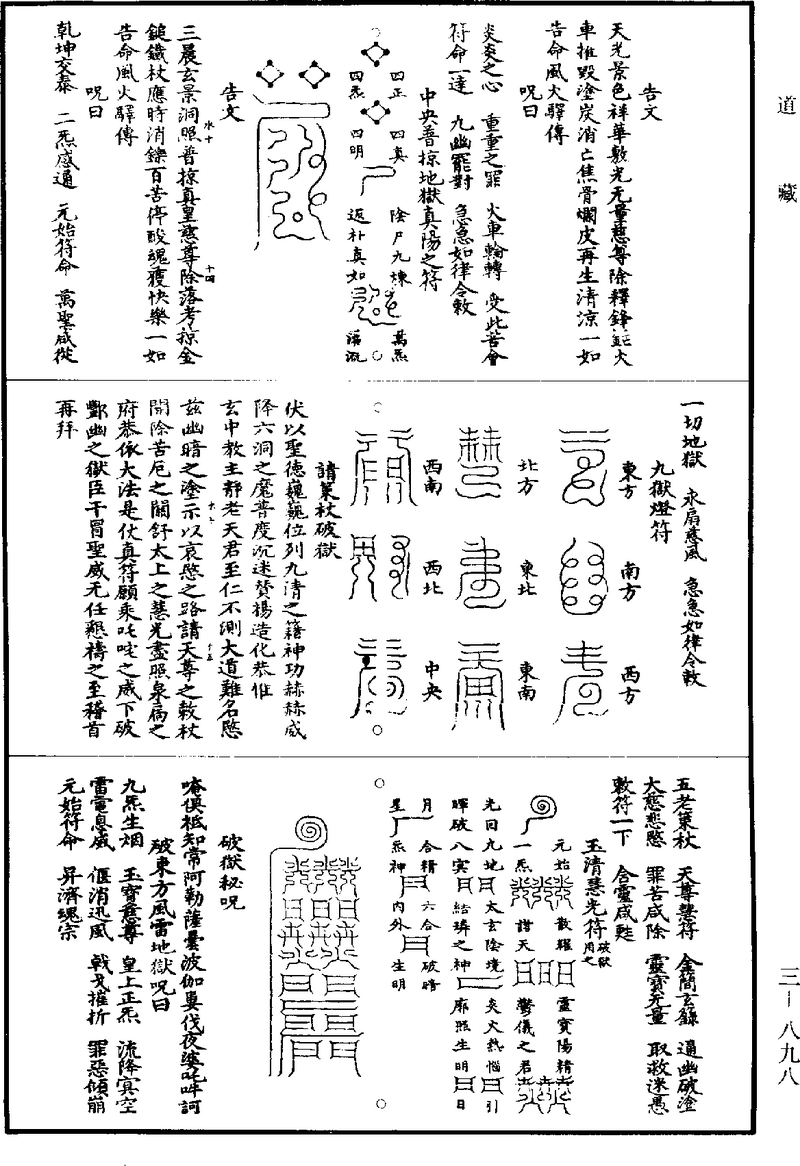 道藏
三—八九八
告文
天光景色祥華敷光无量慈尊除釋鋒鋩火
車摧毀塗炭消亡焦骨爛皮再生清涼一如
告命風火驛傳
呪曰
炎炎之心 重重之罪 火車輪轉 受此苦會
符命一達 九幽罷對 急急如律令敕
中央普掠地獄真陽之符
四正 四真 陰尸九棟 萬炁
四炁 四明 返朴真如 蕩流
告文
三晨玄景洞照普掠真皇慈尊除落考掠金
鎚鐵杖應時消鑠百苦停酸魂獲快樂一如
告命風火驛傳
呪曰
乾坤交泰 二炁感通 元始符命 萬聖咸從
一切地獄 永扇慈風 急急如律令敕
九獄燈符
東方 南方 西方
北方 東北 東南
西南 西北 中央
請策杖破獄
伏以聖德巍巍位列九清之籍神功赫赫威
降六洞之魔普度沉迷贊揚造化恭惟
玄中教主靜老天君至仁不測大道難名愍
茲幽暗之塗示以哀愍之路請天尊之敕杖
開除苦厄之關舒太上之慧光盡照泉扃之
府恭依大法是仗真符願乘吒咤之威下破
酆幽之獄臣干冒聖威无任懇禱之至稽首
再拜
五老策杖 天尊慧符 金簡玄錄 通幽破塗
大慈悲愍 罪苦咸除 靈寶无量 取救迷愚
敕符一下 含靈咸甦
玉清慧光符破獄用之
元始 散輝 靈寶陽精
一炁 諧天 鬱儀之君
光回九地 太玄陰境 炎火熱惱 引
暉破八冥 結璘之神 廓照生明 日
月 合精 六合 破暗
星 炁神 內外 生明
破獄秘呪
唵俱袛知常阿勒薩曇波伽婁伐夜婆吒吽訶
破東方風雷地獄呪曰
九炁生烟 玉寶慈尊 皇上正炁 流降冥空
雷電息威 偃消迅風 戟戈摧折 罪惡傾崩
元始符命 昇濟魂宗